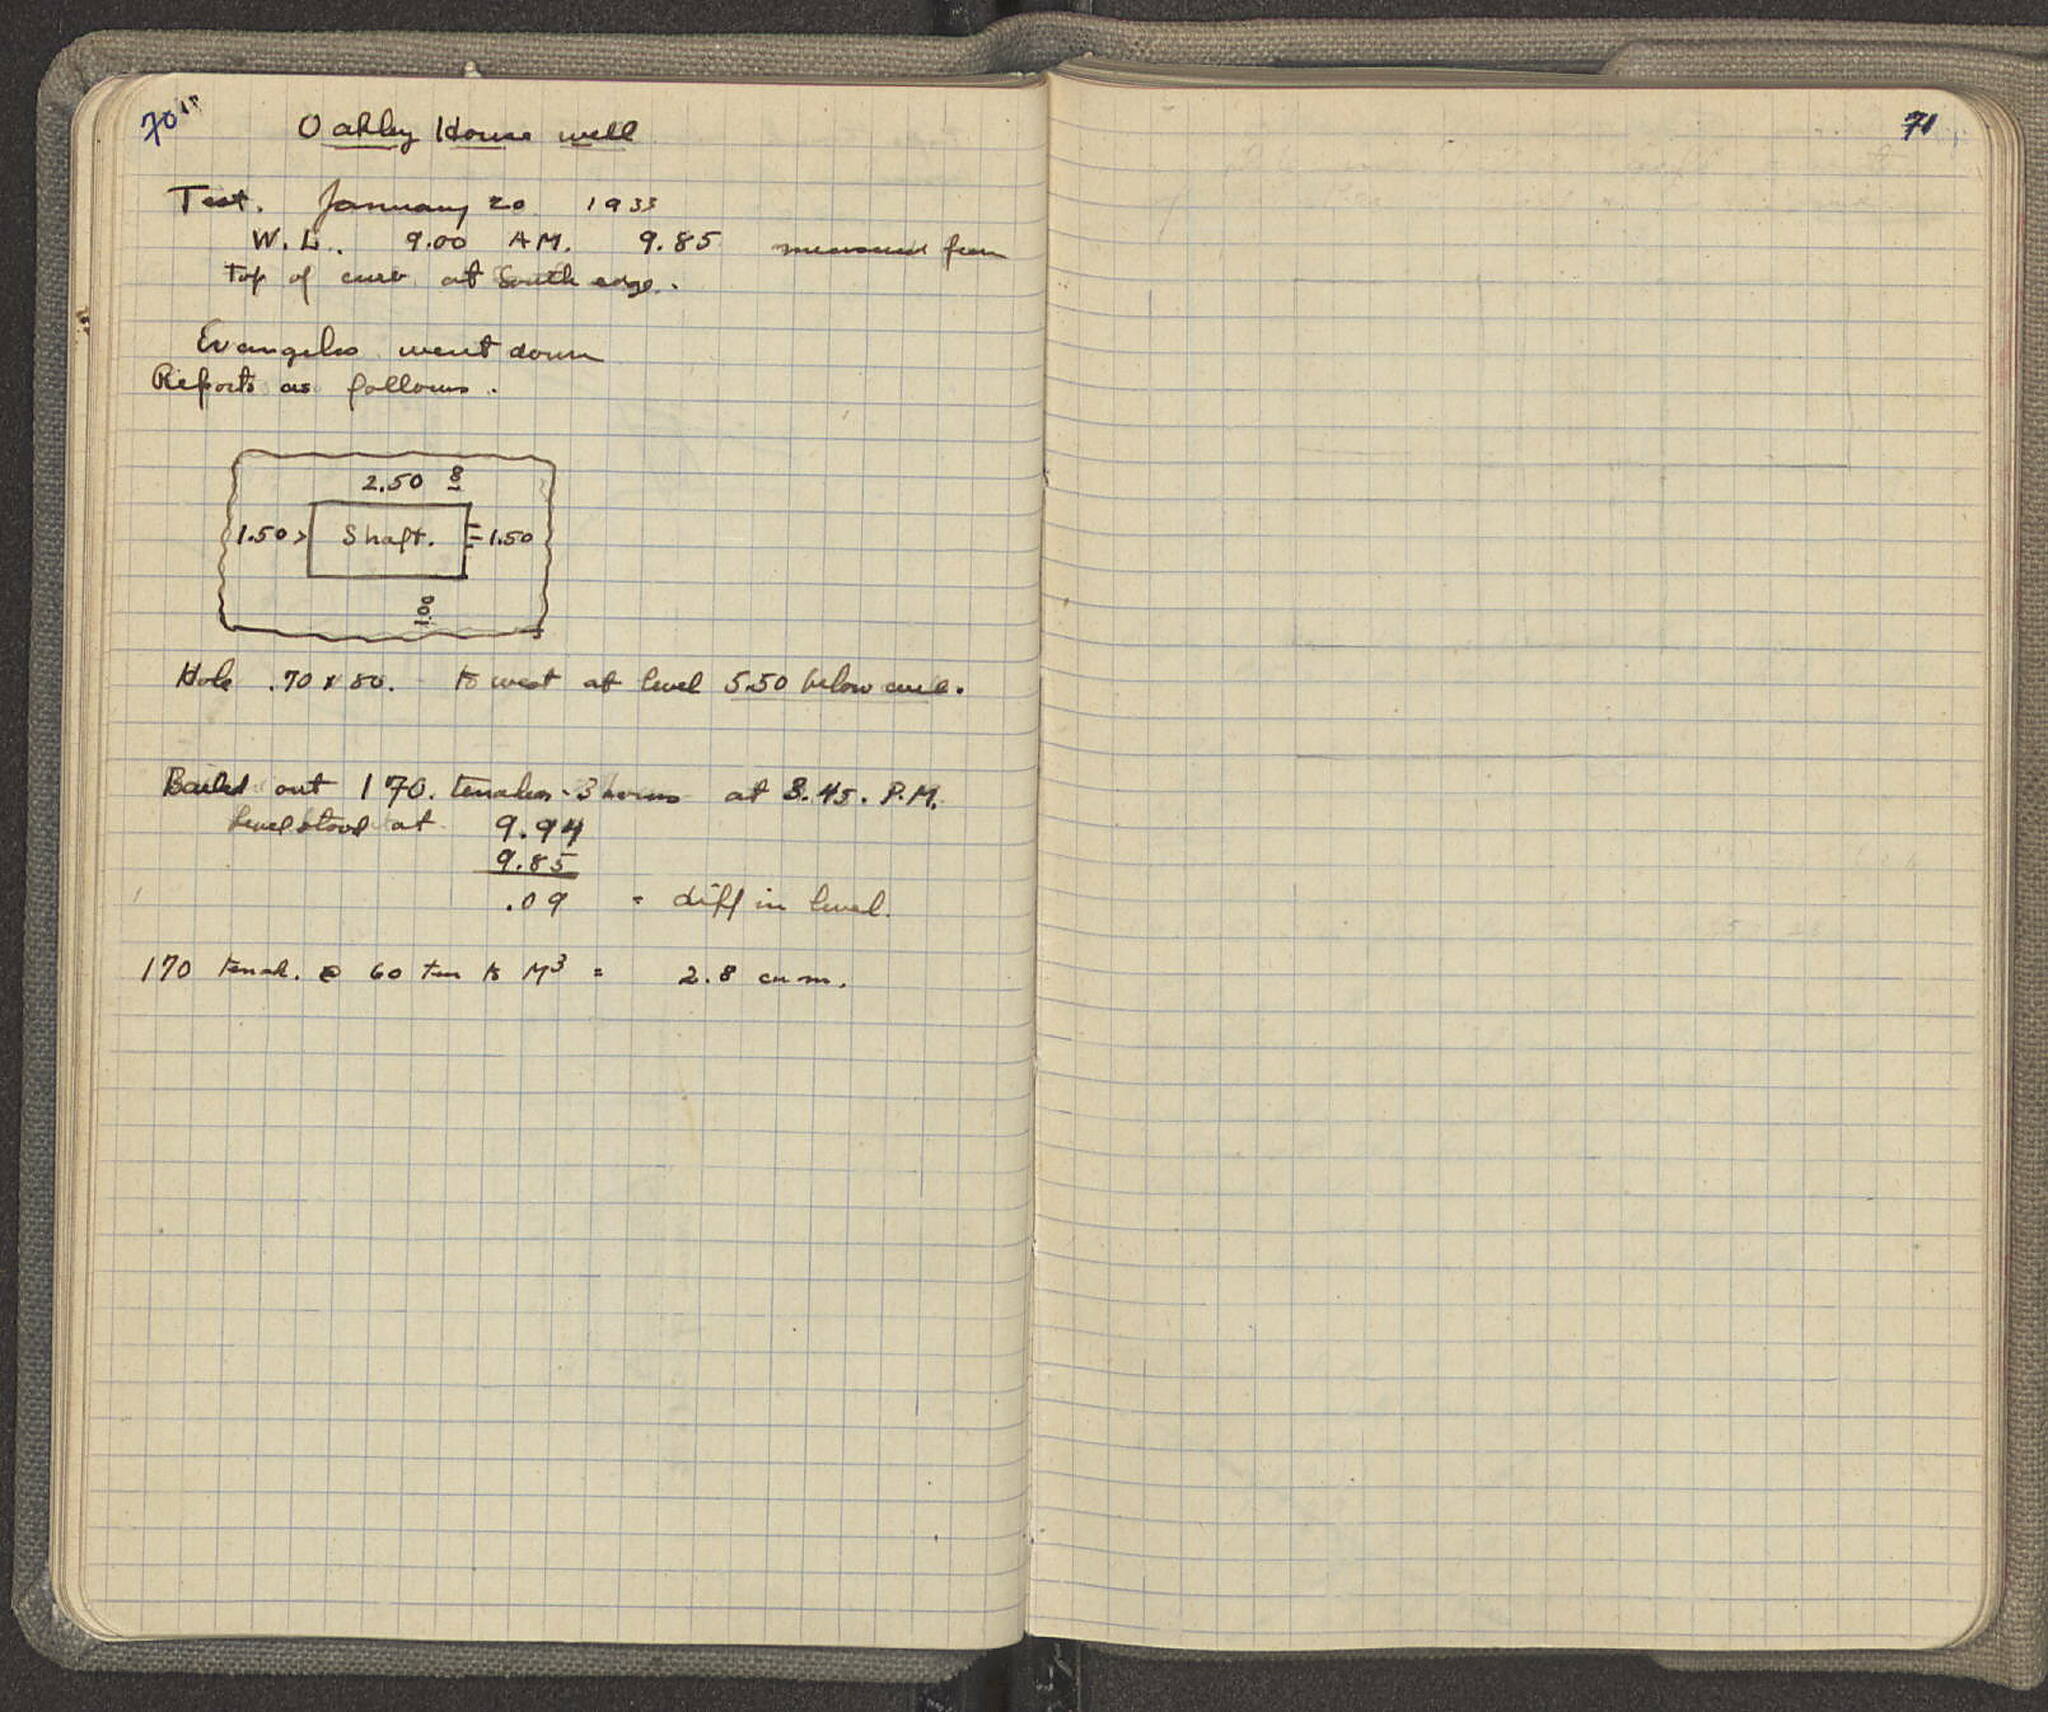 70
Oakley House well
Test. January 20 1933
W.L. 9.00 A.M. 9.85 measured from
top of curb at South edge.
Evangelos went down
Reports as follows.
2.50 8
1.50 > Shaft. = 1.50
Hole .70 x 80. to west at level 5.50 below curb.
Bailed out 170. tenakes - 3 hours at 3.45. P.M.
level stood at 9.94
9.85
.09 = diff in level.
170 tenak. @ 60 ten to M³ = 2.8 cu m.
71